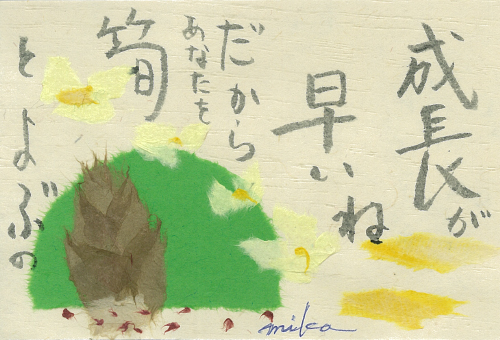 成長が
早いね
だから
あなたを
筍
とよぶの
mika